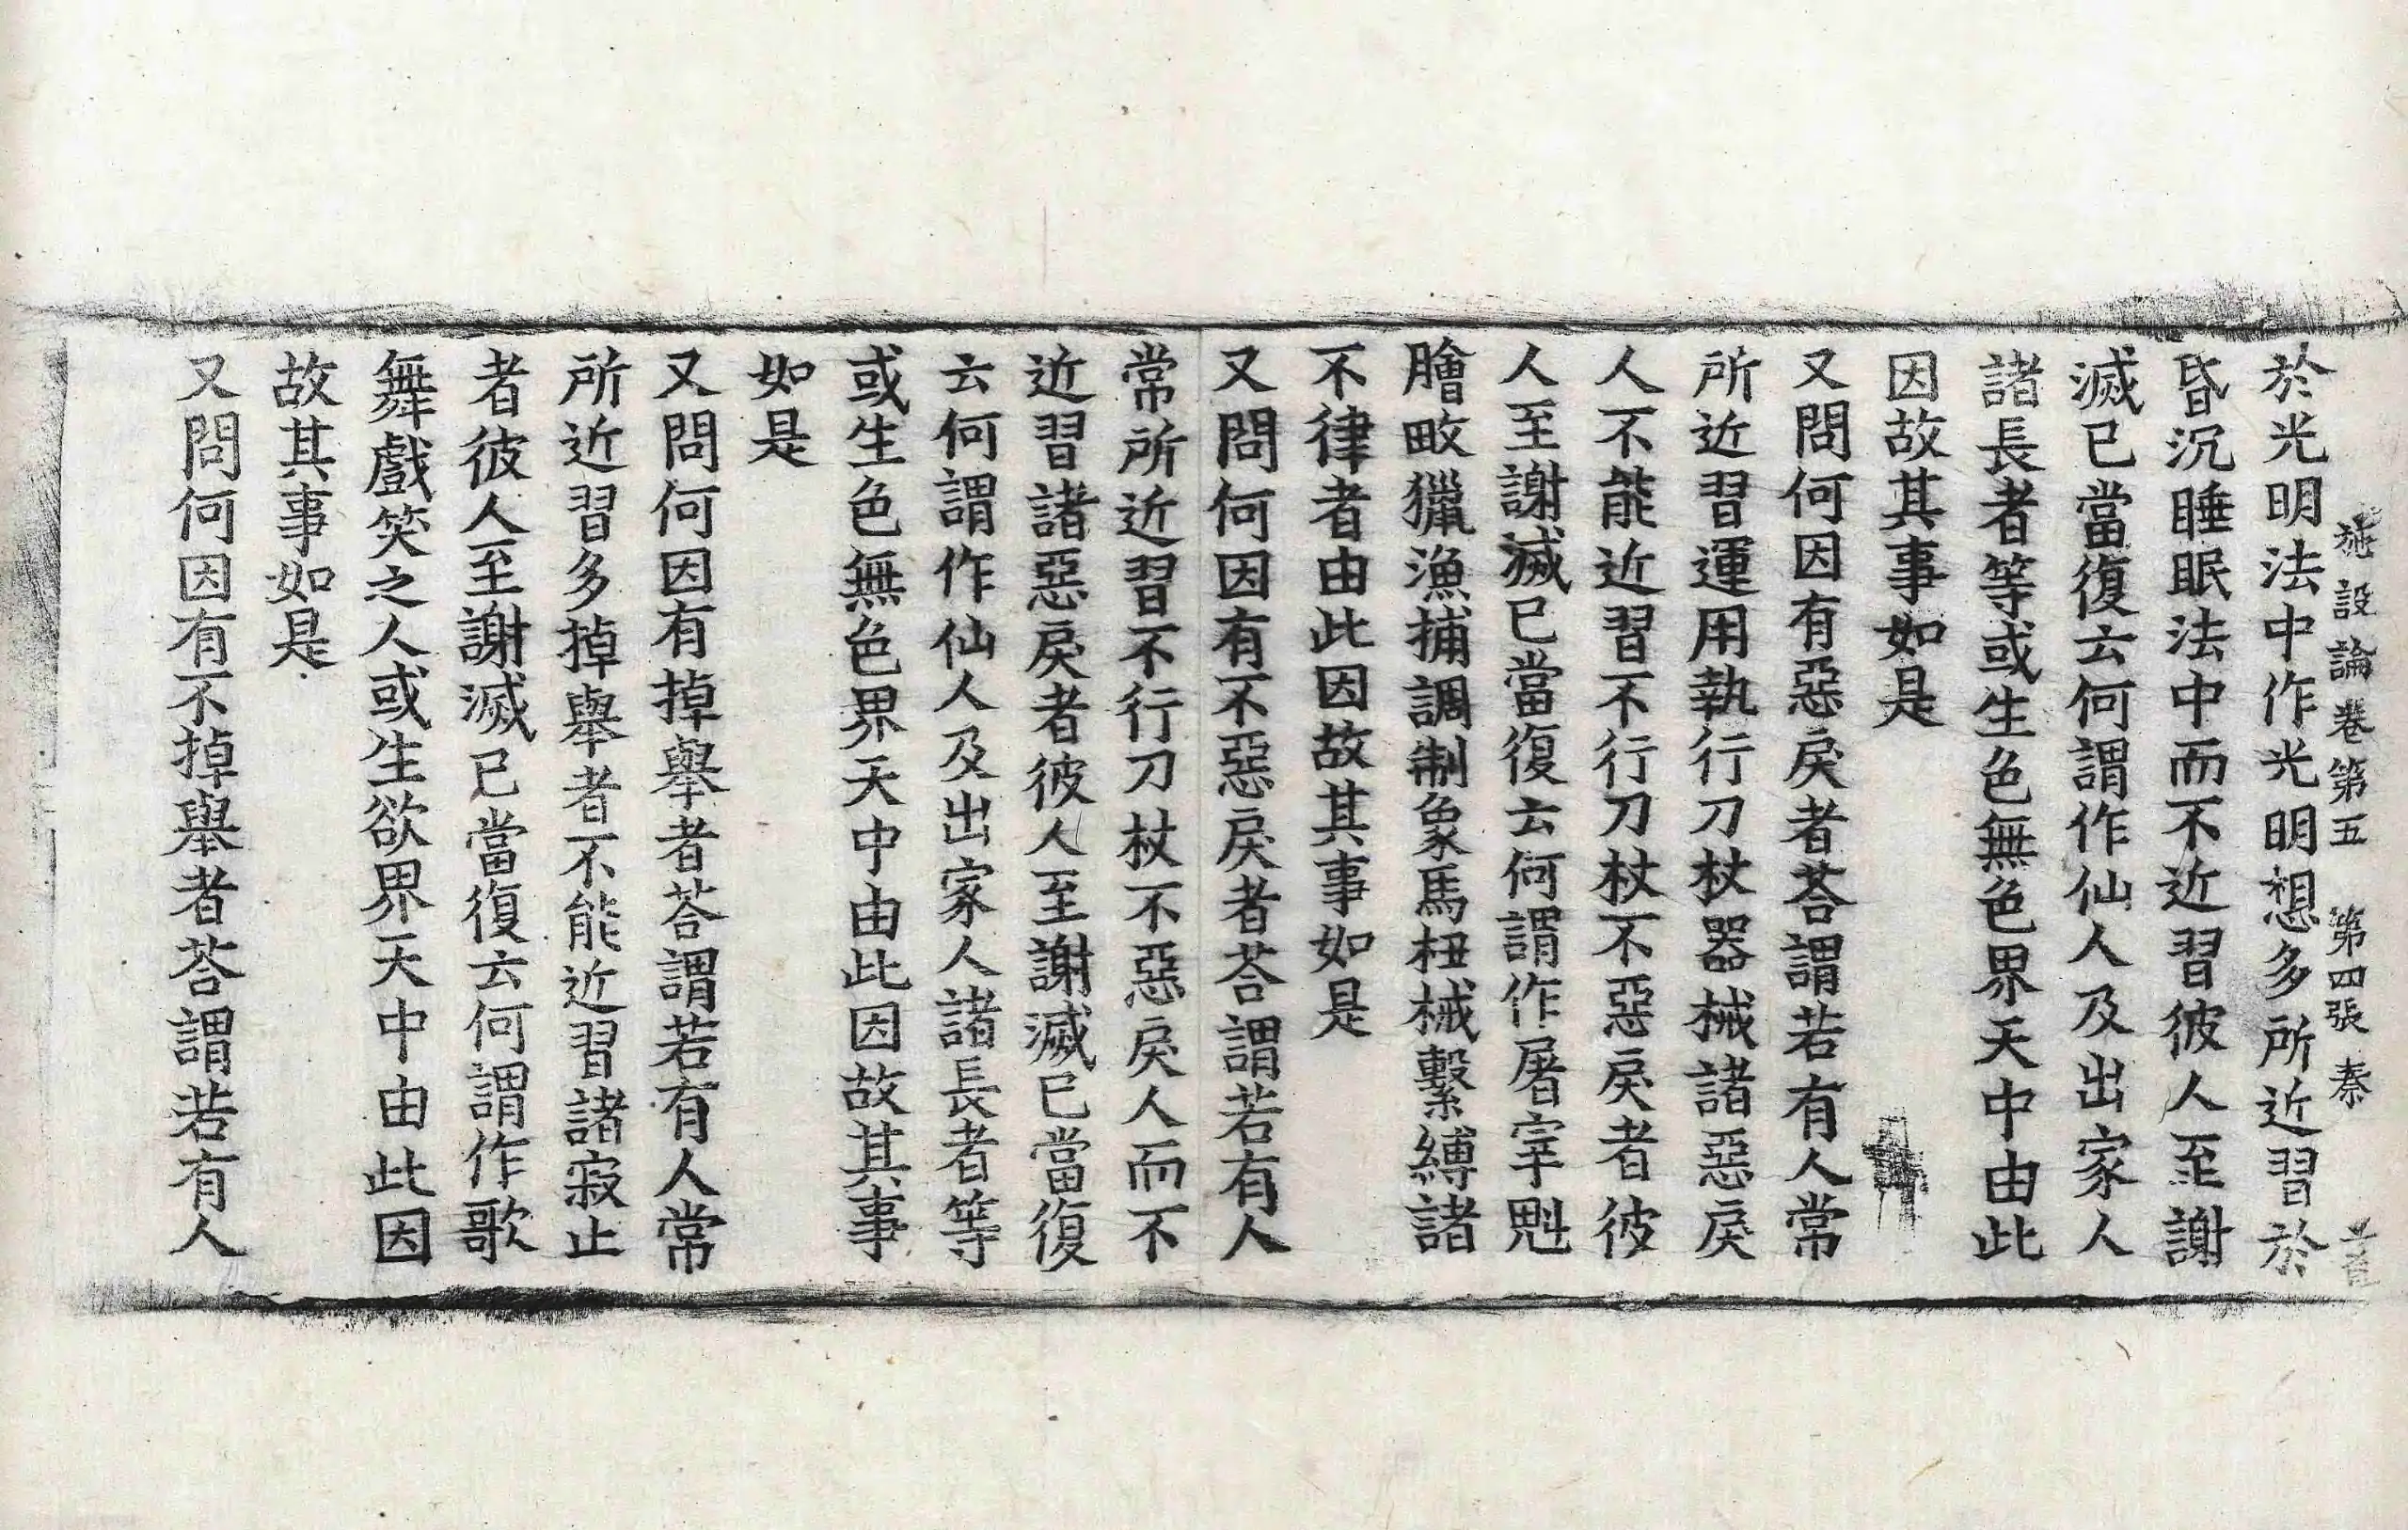 施設論卷第五　第四張　㮈
於光明法中作光明想多所近習於
昏沉睡眠法中而不近習彼人至謝
滅已當復云何謂作仙人及出家人
諸長者等或生色無色界天中由此
因故其事如是
又問何因有惡戾者荅謂若有人常
所近習運用執行刀杖器械諸惡戾
人不能近習不行刀杖不惡戾者彼
人至謝滅已當復云何謂作屠宰魁
膾畋獵漁捕調制象馬杻械繫縛諸
不律者由此因故其事如是
又問何因有不惡戾者荅謂若有人
常所近習不行刀杖不惡戾人而不
近習諸惡戾者彼人至謝滅已當復
云何謂作仙人及出家人諸長者等
或生色無色界天中由此因故其事
如是
又問何因有掉舉者荅謂若有人常
所近習多掉舉者不能近習諸寂止
者彼人至謝滅已當復云何謂作歌
舞戲笑之人或生欲界天中由此因
故其事如是
又問何因有不掉舉者荅謂若有人